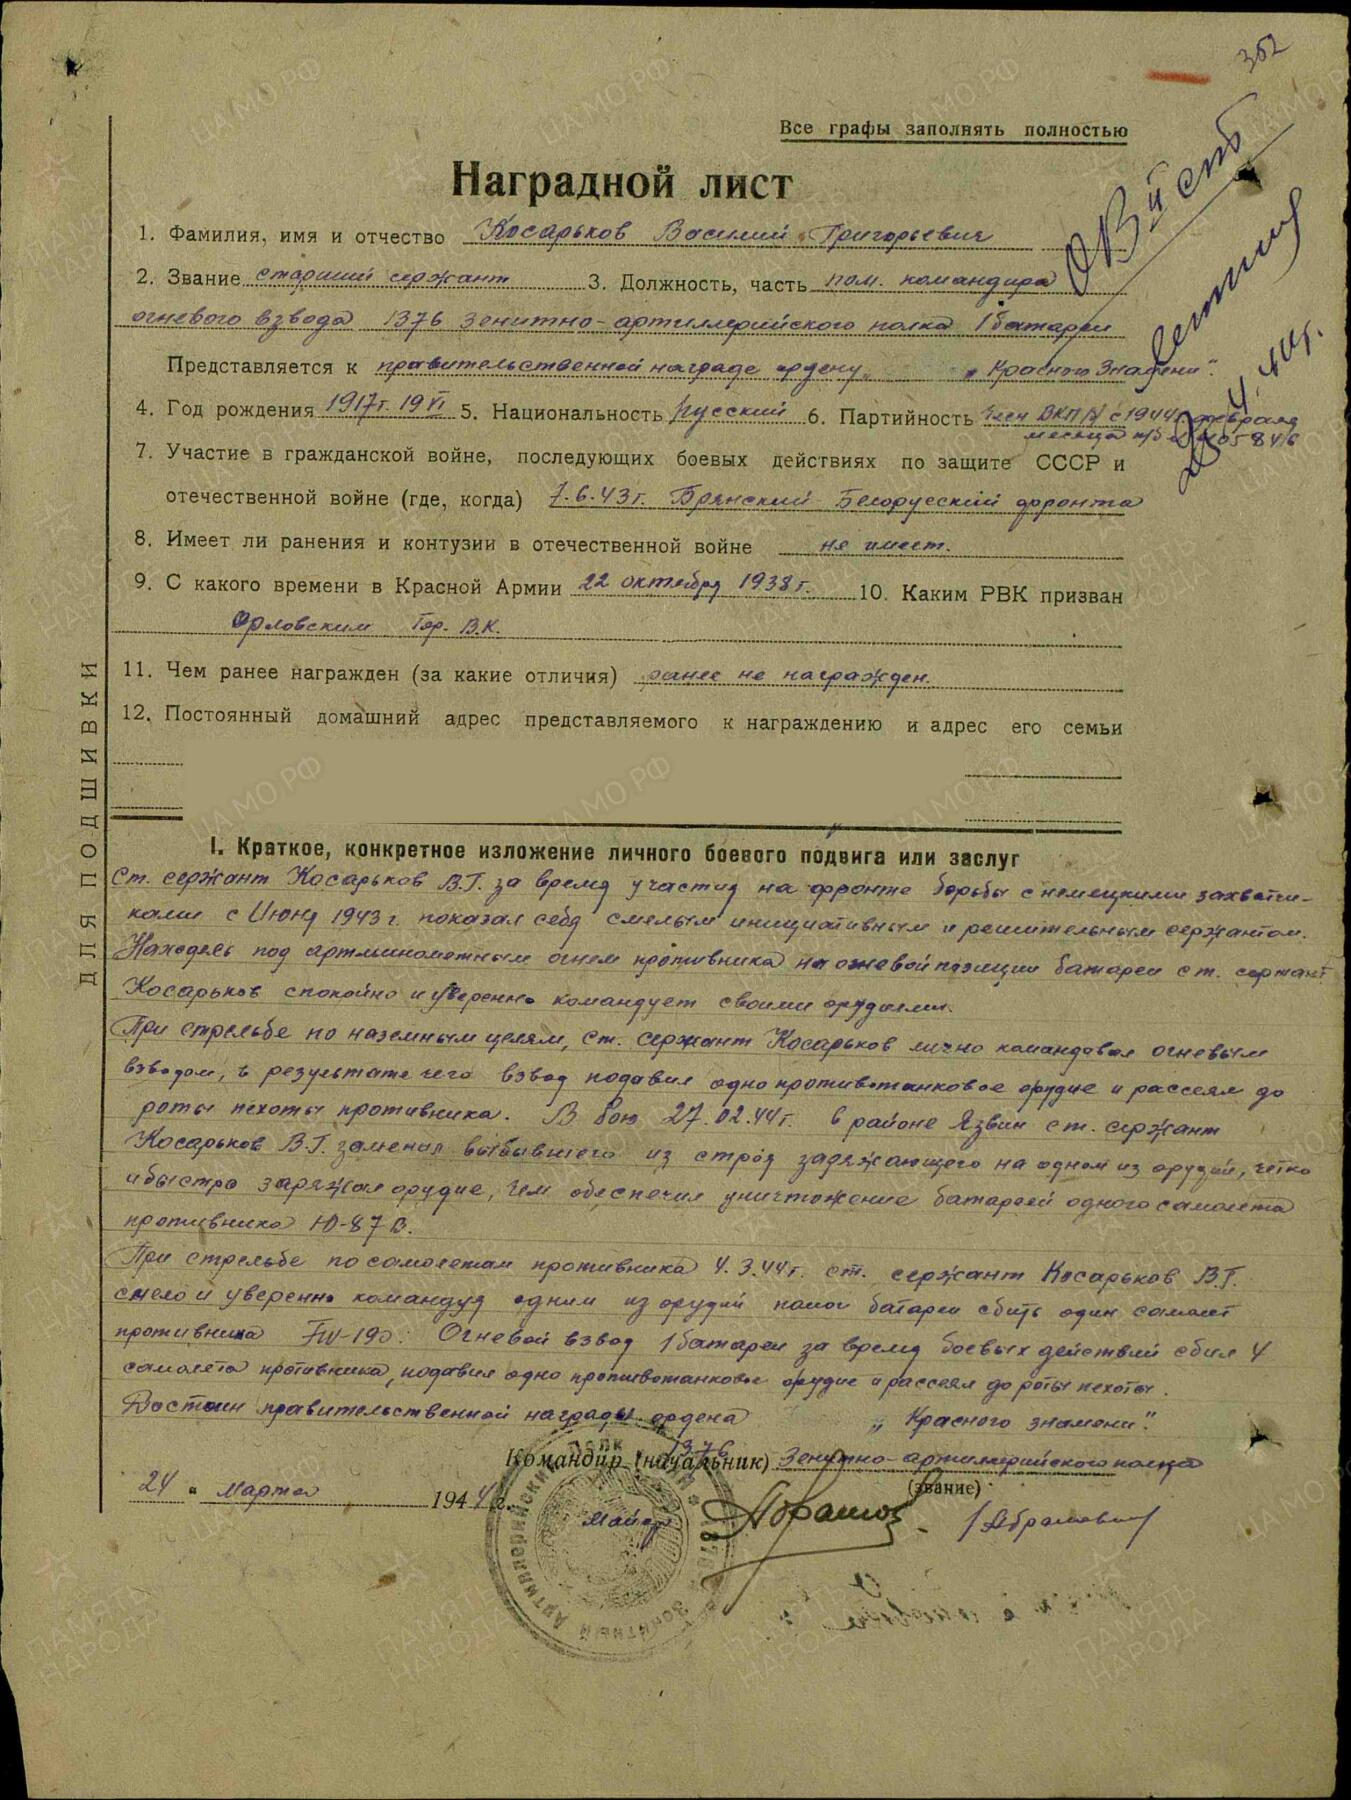 352
Все графы заполнять полностью
Наградной лист
ОВ II степ
1. Фамилия, имя и отчество Косарьков Василий Григорьевич
2. Звание старший сержант 3. Должность, часть пом. командира
огневого взвода 1376 зенитно-артиллерийского полка 1 батареи
Представляется к правительственной награде ордену „Красного Знамени".
4. Год рождения 1917г. 19 VI 5. Национальность русский 6. Партийность член ВКП/б/ с 1944г. февраля
месяца п/б
4.44г.
7. Участие в гражданской войне, последующих боевых действиях по защите СССР и
отечественной войне (где, когда) 7.6.43г. Брянский Белорусский фронта
8. Имеет ли ранения и контузии в отечественной войне не имеет.
9. С какого времени в Красной Армии 22 октября 1938г. 10. Каким РВК призван
Орловским Гор. В.К.
11. Чем ранее награжден (за какие отличия) ранее не награжден.
12. Постоянный домашний адрес представляемого к награждению и адрес его семьи
ДЛЯ ПОДШИВКИ
I. Краткое, конкретное изложение личного боевого подвига или заслуг
Ст. сержант Косарьков В.Г. за время участия на фронте борьбы с немецкими захватчи-
ками с Июня 1943г. показал себя смелым инициативным и решительным сержантом.
Находясь под артминометным огнем противника на огневой позиции батареи ст. сержант
Косарьков спокойно и уверенно командует своими орудиями.
При стрельбе по наземным целям, ст. сержант Косарьков лично командовал огневым
взводом, в результате чего взвод подавил одно противотанковое орудие и рассеял до
роты пехоты противника. В бою 27.02.44г. в районе Язвин ст. сержант
Косарьков В.Г. заменил выбывшего из строя заряжающего на одном из орудий, четко
и быстро заряжал орудие, чем обеспечил уничтожение батареей одного самолета
противника Ю-87 В.
При стрельбе по самолетам противника 4.3.44г. ст. сержант Косарьков В.Г.
смело и уверенно командуя одним из орудий помог батареи сбить один самолет
противника FW-190. Огневой взвод 1 батареи за время боевых действий сбил 4
самолета противника, подавил одно противотанковое орудие и рассеял до роты пехоты.
Достоин правительственной награды ордена „Красного знамени".
Командир (начальник) 1376 Зенитно-артиллерийского полка
(звание)
24 " марта 1944г.
Майор /Абрамович/